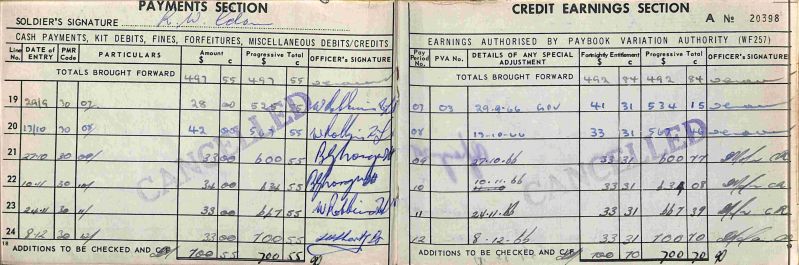 PAYMENTS SECTION
SOLDIER'S SIGNATURE
CASH PAYMENTS, KIT DEBITS, FINES, FORFEITURES, MISCELLANEOUS DEBITS/CREDITS
Line No. DATE of ENTRY PMR Code PARTICULARS Amount $ c Progressive Total $ c OFFICER'S SIGNATURE
TOTALS BROUGHT FORWARD 497 55 497 55
19 29/9 30 07 28 00 525 55
20 13/10 30 08 42 00 567 55
21 27-10 30 09 33 00 600 55
22 10-11 30 10 34 00 634 55
23 24-11 30 11 33 00 667 55
24 8-12 30 12 33 00 700 55
CANCELLED
18 ADDITIONS TO BE CHECKED AND C/F 700 55 700 55
CREDIT EARNINGS SECTION
A No 20398
EARNINGS AUTHORISED BY PAYBOOK VARIATION AUTHORITY (WF257)
Pay Period No. PVA No. DETAILS OF ANY SPECIAL ADJUSTMENT Fortnightly Entitlement $ c Progressive Total $ c OFFICER'S SIGNATURE
TOTALS BROUGHT FORWARD 492 84 492 84
07 03 29-9-66 GOV 41 31 534 15
08 13-10-66 33 31 567 46
09 27-10-66 33 31 600 77
10 10-11-66 33 31 634 08
11 24-11-66 33 31 667 39
12 8-12-66 33 31 700 70
CANCELLED
ADDITIONS TO BE CHECKED AND C/F 700 70 700 70
19